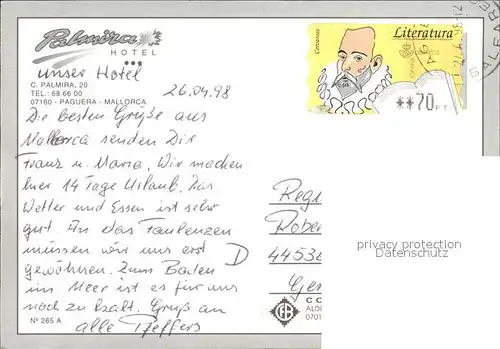 Palmira
HOTEL
***
unser Hotel
C. PALMIRA, 20
TEL.: 68 66 00
07160 - PAGUERA - MALLORCA
26.04.98
Die besten Grüße aus
Mallorca senden Dir
Franz u. Maria. Wir machen
hier 14 Tage Urlaub. Das
Wetter und Essen ist sehr
gut. An das Faulenzen
müssen wir uns erst
gewöhnen. Zum Baden
im Meer ist es für uns
noch zu kalt. Gruß an
alle Pfeffers
Nº 265 A
Literatura
Cervantes
ESPAÑA
**70 PT
BALEARES
Regi
Rober
D 44534
Ger
privacy protection
Datenschutz
CO
ALDI
0701